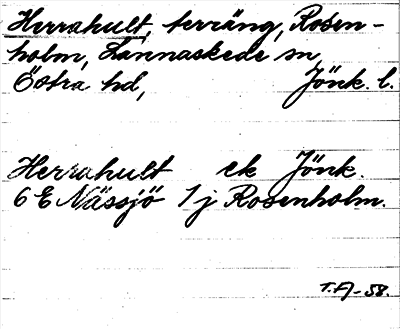 Herrahult, terräng, Rosen-
holm, Lannaskede sn,
Östra hd, Jönk. l.
Herrahult ek Jönk.
6 E Nässjö 1 j Rosenholm.
T.A-58.